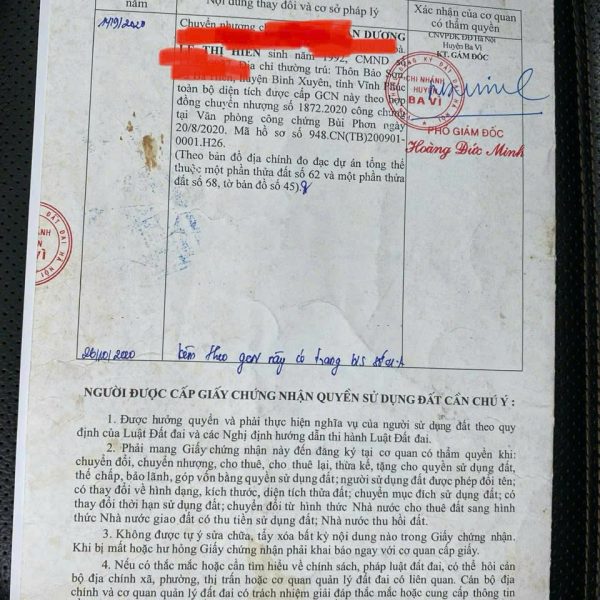 năm
Nội dung thay đổi và cơ sở pháp lý
Xác nhận của cơ quan
có thẩm quyền
14/9/2020
Chuyển nhượng
DƯƠNG
THỊ HIỀN sinh năm 1992, CMND
Địa chỉ thường trú: Thôn Bảo Sơn,
huyện Bình Xuyên, tỉnh Vĩnh Phúc
toàn bộ diện tích được cấp GCN này theo hợp
đồng chuyển nhượng số 1872.2020 công chứng
tại Văn phòng công chứng Bùi Phơn ngày
20/8/2020. Mã hồ sơ số 948.CN(TB)200901-
0001.H26.
(Theo bản đồ địa chính đo đạc dự án tổng thể
thuộc một phần thửa đất số 62 và một phần thửa
đất số 58, tờ bản đồ số 45).
CNVPĐK ĐĐ Hà Nội
Huyện Ba Vì
KT. GIÁM ĐỐC
CHI NHÁNH
HUYỆN
BA VÌ
PHÓ GIÁM ĐỐC
Hoàng Đức Minh
ĐẤT ĐAI HÀ NỘI
26/10/2020
kèm theo GCN này có trang BS số 01
NGƯỜI ĐƯỢC CẤP GIẤY CHỨNG NHẬN QUYỀN SỬ DỤNG ĐẤT CẦN CHÚ Ý :
1. Được hưởng quyền và phải thực hiện nghĩa vụ của người sử dụng đất theo quy
định của Luật Đất đai và các Nghị định hướng dẫn thi hành Luật Đất đai.
2. Phải mang Giấy chứng nhận này đến đăng ký tại cơ quan có thẩm quyền khi:
chuyển đổi, chuyển nhượng, cho thuê, cho thuê lại, thừa kế, tặng cho quyền sử dụng đất,
thế chấp, bảo lãnh, góp vốn bằng quyền sử dụng đất; người sử dụng đất được phép đổi tên;
có thay đổi về hình dạng, kích thước, diện tích thửa đất; chuyển mục đích sử dụng đất; có
thay đổi thời hạn sử dụng đất; chuyển đổi từ hình thức Nhà nước cho thuê đất sang hình
thức Nhà nước giao đất có thu tiền sử dụng đất; Nhà nước thu hồi đất.
3. Không được tự ý sửa chữa, tẩy xóa bất kỳ nội dung nào trong Giấy chứng nhận.
Khi bị mất hoặc hư hỏng Giấy chứng nhận phải khai báo ngay với cơ quan cấp giấy.
4. Nếu có thắc mắc hoặc cần tìm hiểu về chính sách, pháp luật đất đai, có thể hỏi cán
bộ địa chính xã, phường, thị trấn hoặc cơ quan quản lý đất đai có liên quan. Cán bộ địa
chính và cơ quan quản lý đất đai có trách nhiệm giải đáp thắc mắc hoặc cung cấp thông tin